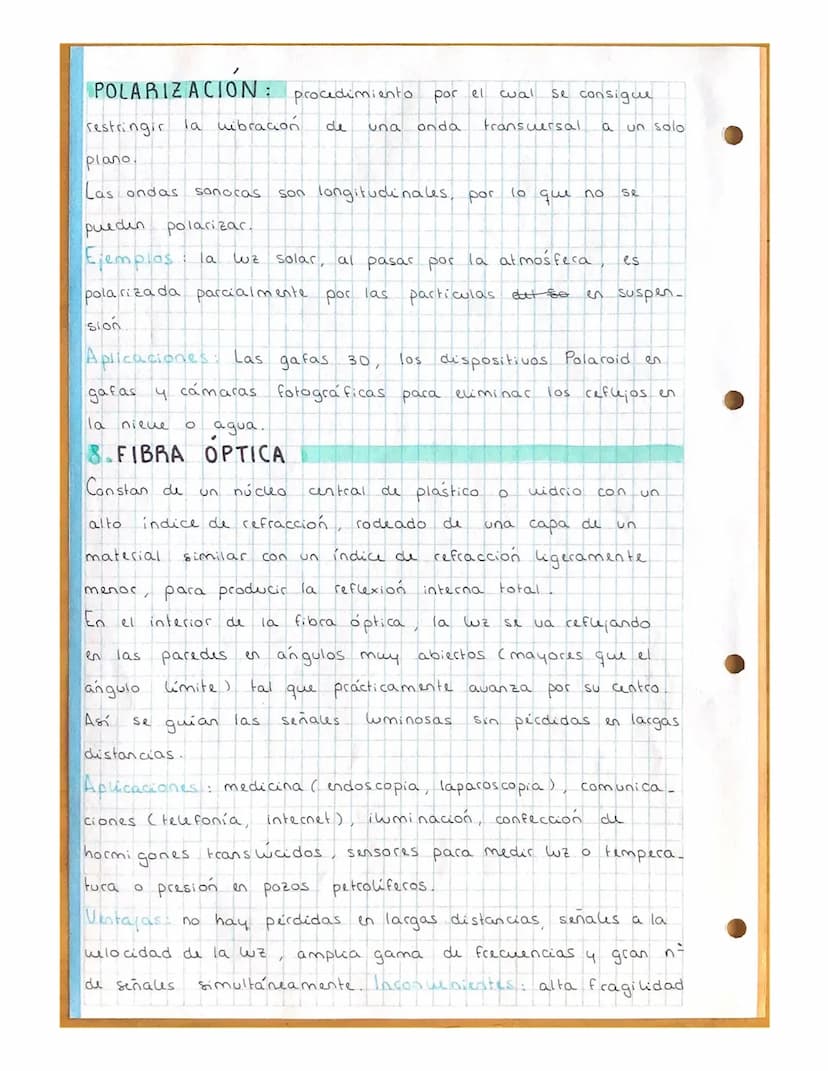 POLARIZACIÓN: procedimiento por el cual se consigue
restringir la vibración de una onda transversal a un solo
plano.
Las ondas sonoras son longitudinales, por lo que no se
pueden polarizar.
Ejemplos: la luz solar, al pasar por la atmósfera, es
polarizada parcialmente por las partículas en suspen-
sión.
Aplicaciones: Las gafas 3D, los dispositivos Polaroid en
gafas y cámaras fotográficas para eliminar los reflejos en
la nieve o agua.
8. FIBRA ÓPTICA
Constan de un núcleo central de plástico o vidrio con un
alto índice de refracción, rodeado de una capa de un
material similar con un índice de refracción ligeramente
menor, para producir la reflexión interna total.
En el interior de la fibra óptica, la luz se va reflejando
en las paredes en ángulos muy abiertos (mayores que el
ángulo límite) tal que prácticamente avanza por su centro.
Así se guían las señales luminosas sin pérdidas en largas
distancias.
Aplicaciones: medicina (endoscopia, laparoscopia), comunica-
ciones (telefonía, internet), iluminación, confección de
hormigones translúcidos, sensores para medir luz o tempera-
tura o presión en pozos petrolíferos.
Ventajas: no hay pérdidas en largas distancias, señales a la
velocidad de la luz, amplia gama de frecuencias y gran nº
de señales simultáneamente. Inconvenientes: alta fragilidad